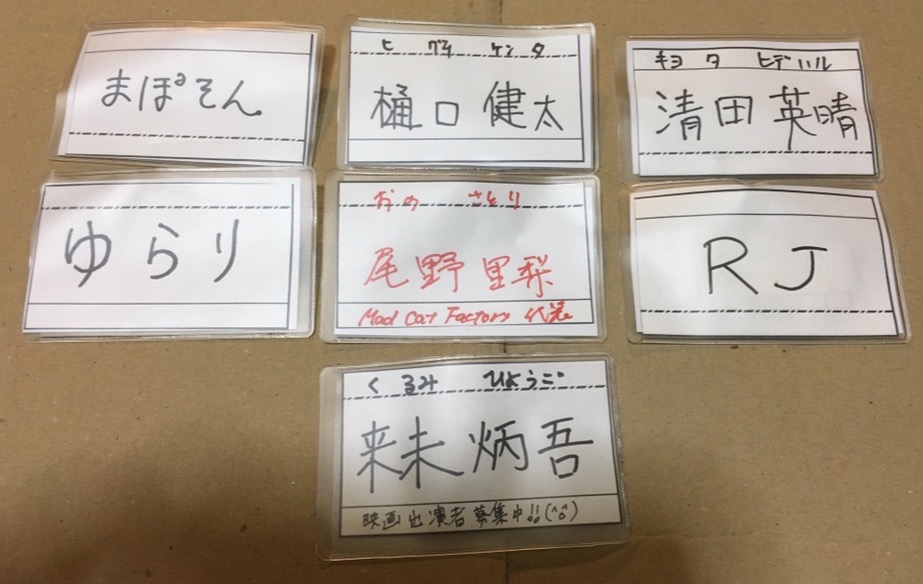 まぽそん
ヒグチ ケンタ
樋口健太
キヨタ ヒデハル
清田英晴
ゆらり
おの さとり
尾野里梨
Mad Cat Factory 代表
RJ
くるみ ひょうご
来未炳吾
映画出演者募集中!!(^o^)